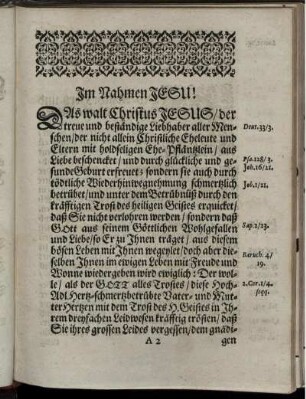 Im Nahmen JESU!
DAs walt Christus JESUS/der
treue und beständige Liebhaber aller Men-
schen/der nicht allein Christliche Eheleute und
Eltern mit holdseligen Ehe-Pfläntzlein/ aus
Liebe beschencket/ und durch glückliche und ge-
sunde Geburt erfreuet/ sondern sie auch durch
tödtliche Wiederhinwegnehmung schmertzlich
betrübet/ und unter dem Betrübnüß durch den
kräfftigen Trost des heiligen Geistes erquicket/
daß Sie nicht verlohren werden / sondern daß
GOtt aus seinem Göttlichen Wohlgefallen
und Liebe/so Er zu Jhnen träget/ aus diesem
bösen Leben mit Jhnen wegeylet/doch aber die-
selben Jhnen im ewigen Leben mit Freude und
Wonne wiedergeben wird ewiglich: Der wol-
le/ als der GOTT alles Trostes/ diese Hoch-
Adl. Hertz-schmertzbetrübte Vater- und Mut-
ter Hertzen mit dem Trost des H. Geistes in Jh-
rem dreyfachen Leidwesen kräfftig trösten/ daß
Sie ihres grossen Leides vergessen/ dem gnädi-
A 2 gen
Deut. 33/3.
Psa. 128/3.
Joh. 16/21.
Job. 1/21.
Sap. 2/23.
Baruch. 4/
19.
2. Cor. 1/4.
seqq.